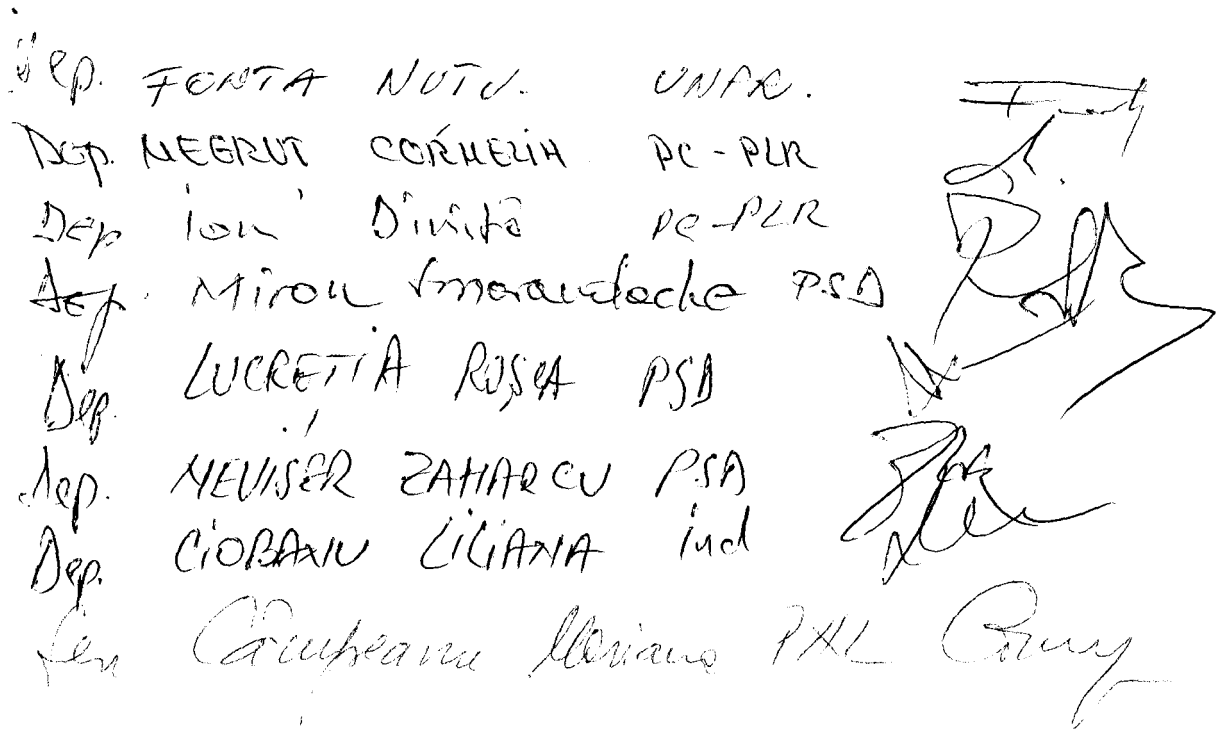 Dep. FONTA NUTU. UNPR.
Dep. NEGRUT CORNELIA PC-PLR
Dep Ion Diniță PC-PLR
Dep. Miron Smarandache PSD
Dep. LUCREȚIA ROȘCA PSD
Dep. NEVISER ZAHARCU PSD
Dep. CIOBANU LILIANA ind
Sen Câmpeanu Mariana PNL